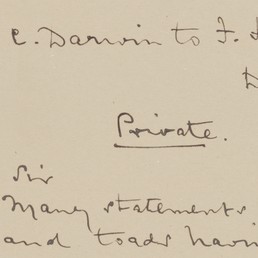 C. Darwin to F. J
D
Private.
Sir
Many statements
and toads havin